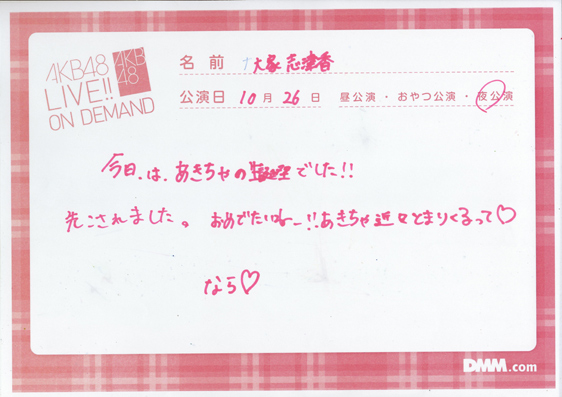 AKB48
LIVE!!
ON DEMAND
AKB
48
名前 大家志津香
公演日 10月26日 昼公演・おやつ公演・夜公演
今日、は、あきちゃの でした!!
先こされました。おめでたいねー!!あきちゃ近々とまりくるって♡
なら♡
DMM.com